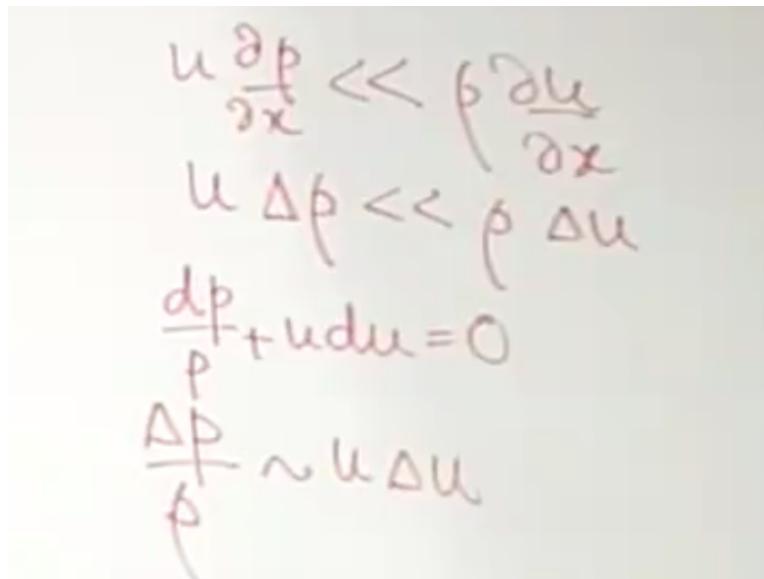 u ∂ρ/∂x << ρ ∂u/∂x
u Δρ << ρ Δu
dp/ρ + udu = 0
Δp/ρ ~ u Δu